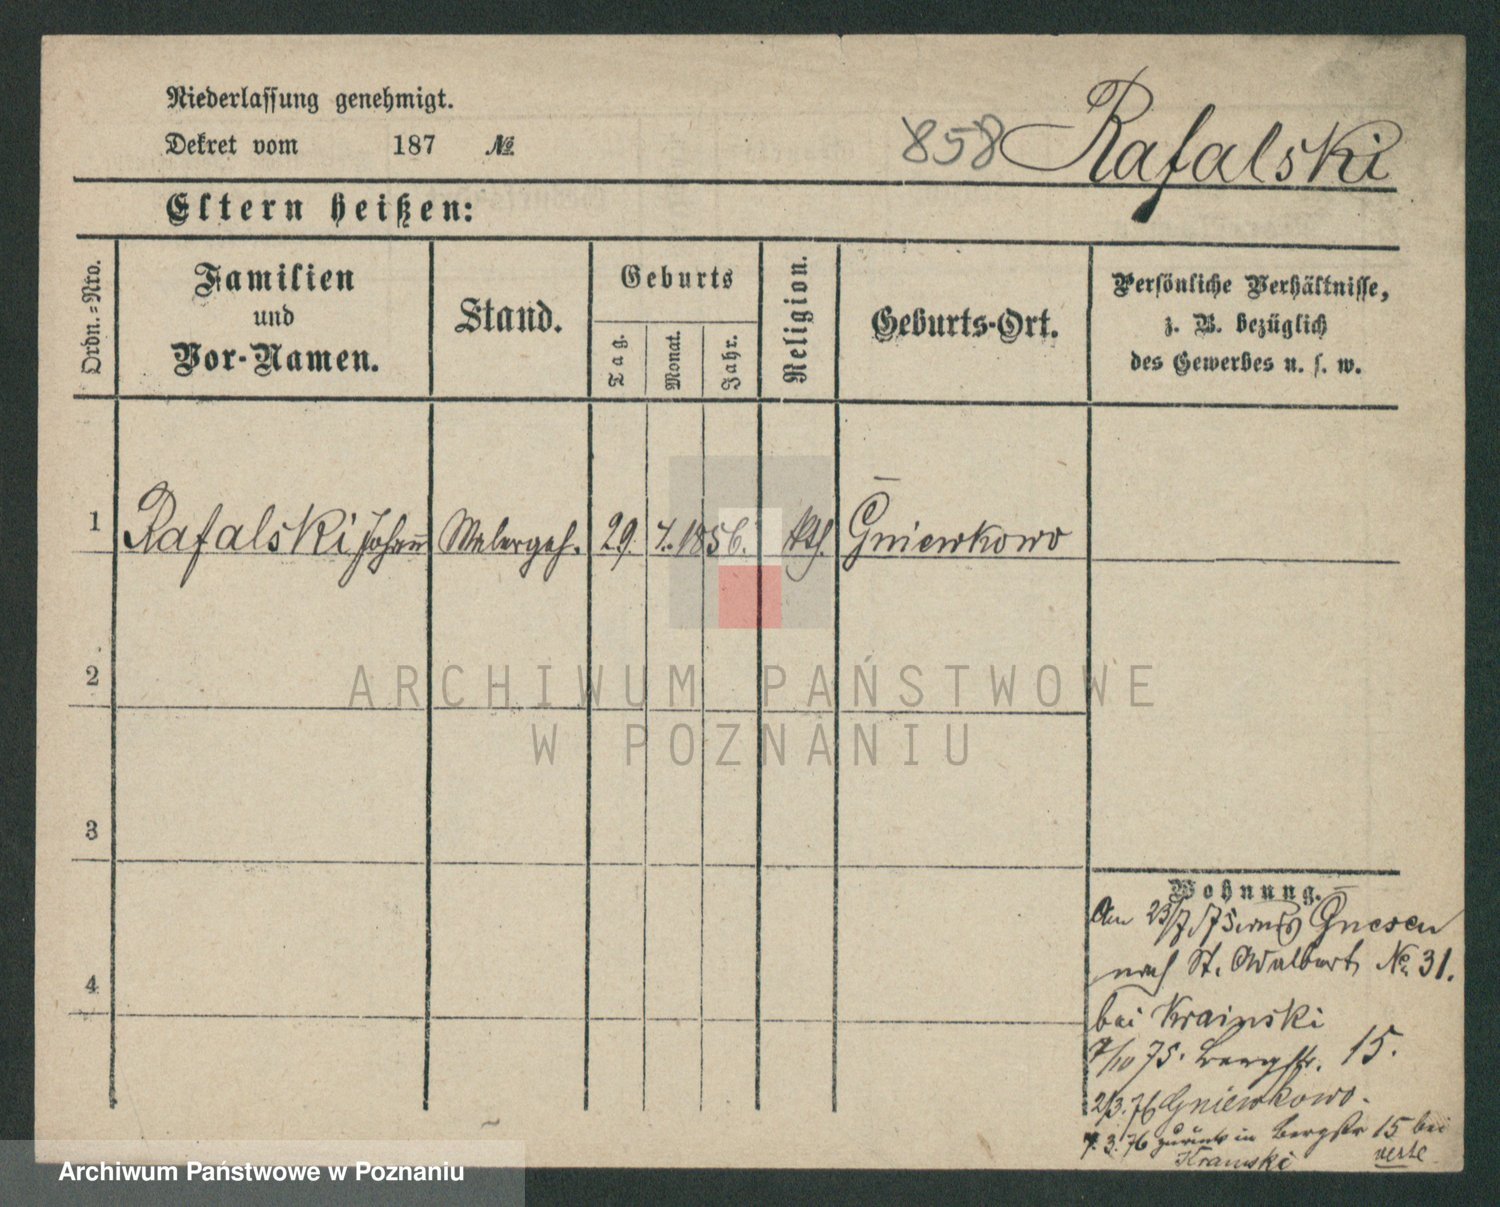 Niederlassung genehmigt.
Dekret vom 187 №
858 Rafalski
Eltern heißen:
Ordn.-Nro.
Familien
und
Vor-Namen.
Stand.
Geburts
Tag.
Monat.
Jahr.
Religion.
Geburts-Ort.
Persönliche Verhältnisse,
z. B. bezüglich
des Gewerbes u. s. w.
1 Rafalski Johann Malergeh. 29. 7. 1856. kth. Gniewkowo
2
3
4
Wohnung.
Am 23/7 75 aus Gnesen
nach St. Adalbert № 31.
bei Krainski
7/10 75. Bergstr. 15.
2/3. 76 Gniewkowo.
7. 3. 76 zurück in Bergstr 15 bei
Krainski verte
ARCHIWUM PAŃSTWOWE
W POZNANIU
Archiwum Państwowe w Poznaniu